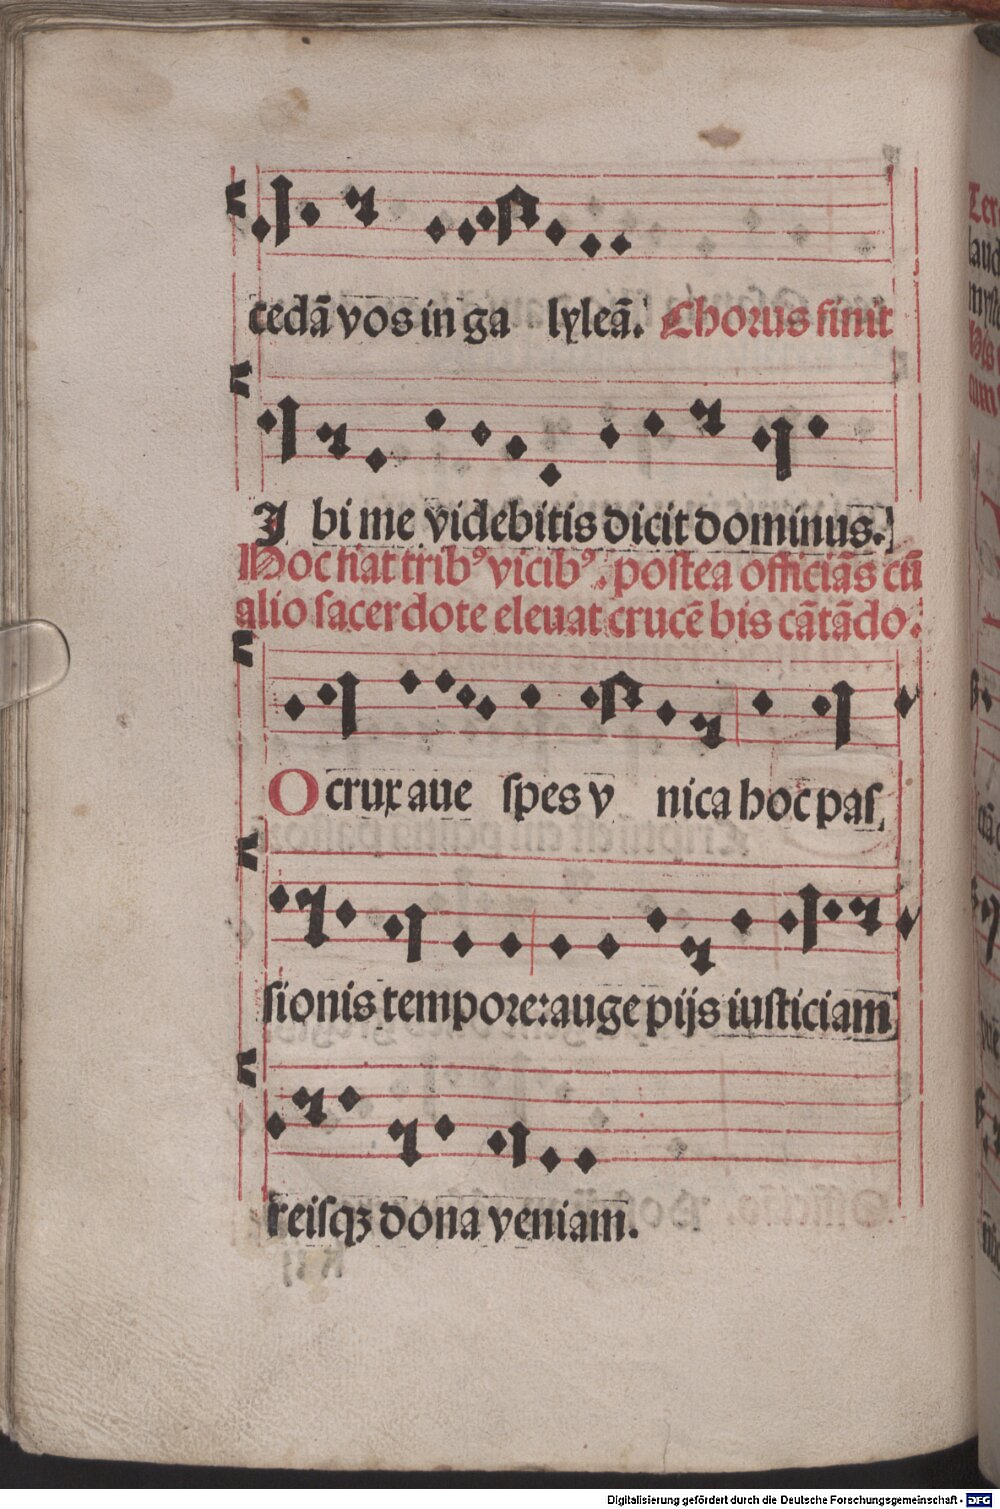 cedā vos in ga lyleā. Chorus finit
I bi me videbitis dicit dominus.
Hoc fiat tribꝰ vicibꝰ. postea officiās cū
alio sacerdote eleuat crucē bis cātādo.
O crux aue spes v nica hoc pas
sionis tempore: auge pijs iusticiam
reisqꝫ dona veniam.
Digitalisierung gefördert durch die Deutsche Forschungsgemeinschaft - DFG